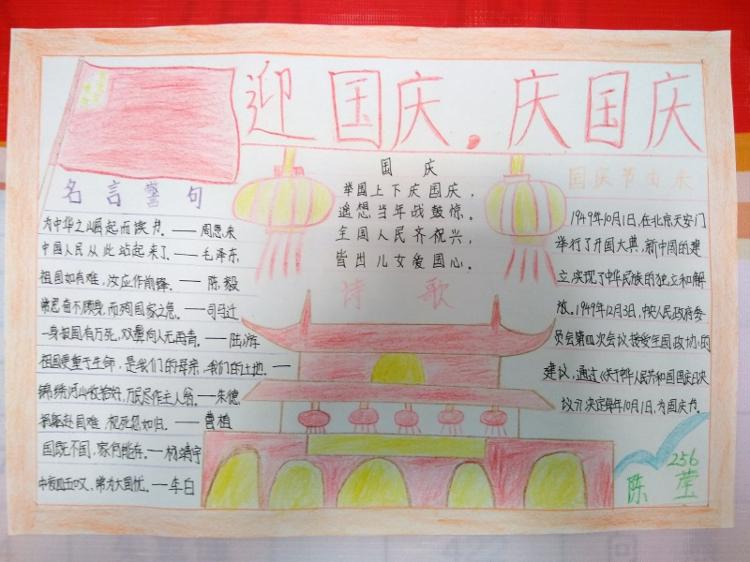 迎国庆，庆国庆
名言警句
为中华之崛起而读书。——周恩来
中国人民从此站起来了——毛泽东
祖国如有难，汝应作前锋。——陈毅
常思奋不顾身，而殉国家之急。——司马迁
一身报国有万死，双鬓向人无再青。——陆游
祖国更重于生命，是我们的母亲，我们的土地。——
锦绣河山收拾好，万民尽作主人翁。——朱德
捐躯赴国难，视死忽如归。——曹植
国既不国，家何能存。——杨靖宇
中夜四五叹，常为大国忧。——李白
国庆
举国上下庆国庆，
遥想当年战鼓惊。
全国人民齐祝兴，
皆出儿女爱国心。
诗歌
国庆节由来
1949年10月1日，在北京天安门
举行了开国大典，新中国的建
立，实现了中华民族的独立和解
放。1949年12月3日，中央人民政府委
员会第四次会议接受全国政协的
建议，通过《关于中华人民共和国国庆日决
议》决定每年10月1日，为国庆节。
256
陈莹